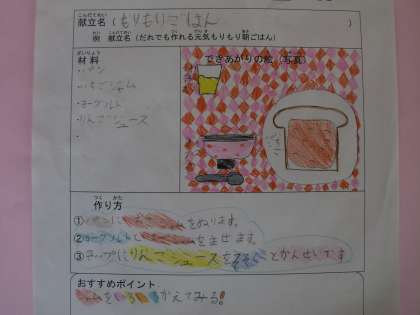 こんだてめい
献立名(もりもりごはん)
れい こんだてめい つく げんき あさ
例 献立名(だれでも作れる元気もりもり朝ごはん)
ざいりょう
材料
・パン
・いちごジャム
・ヨーグルト
・りんごジュース
・
できあがりの絵(写真)
つく かた
作り方
①パンにジャムをぬります。
②ヨーグルトにジャムをまぜます。
③コップにりんごジュースをそそぐとかんせいです
おすすめポイント
ジャムをいろいろかえてみる!